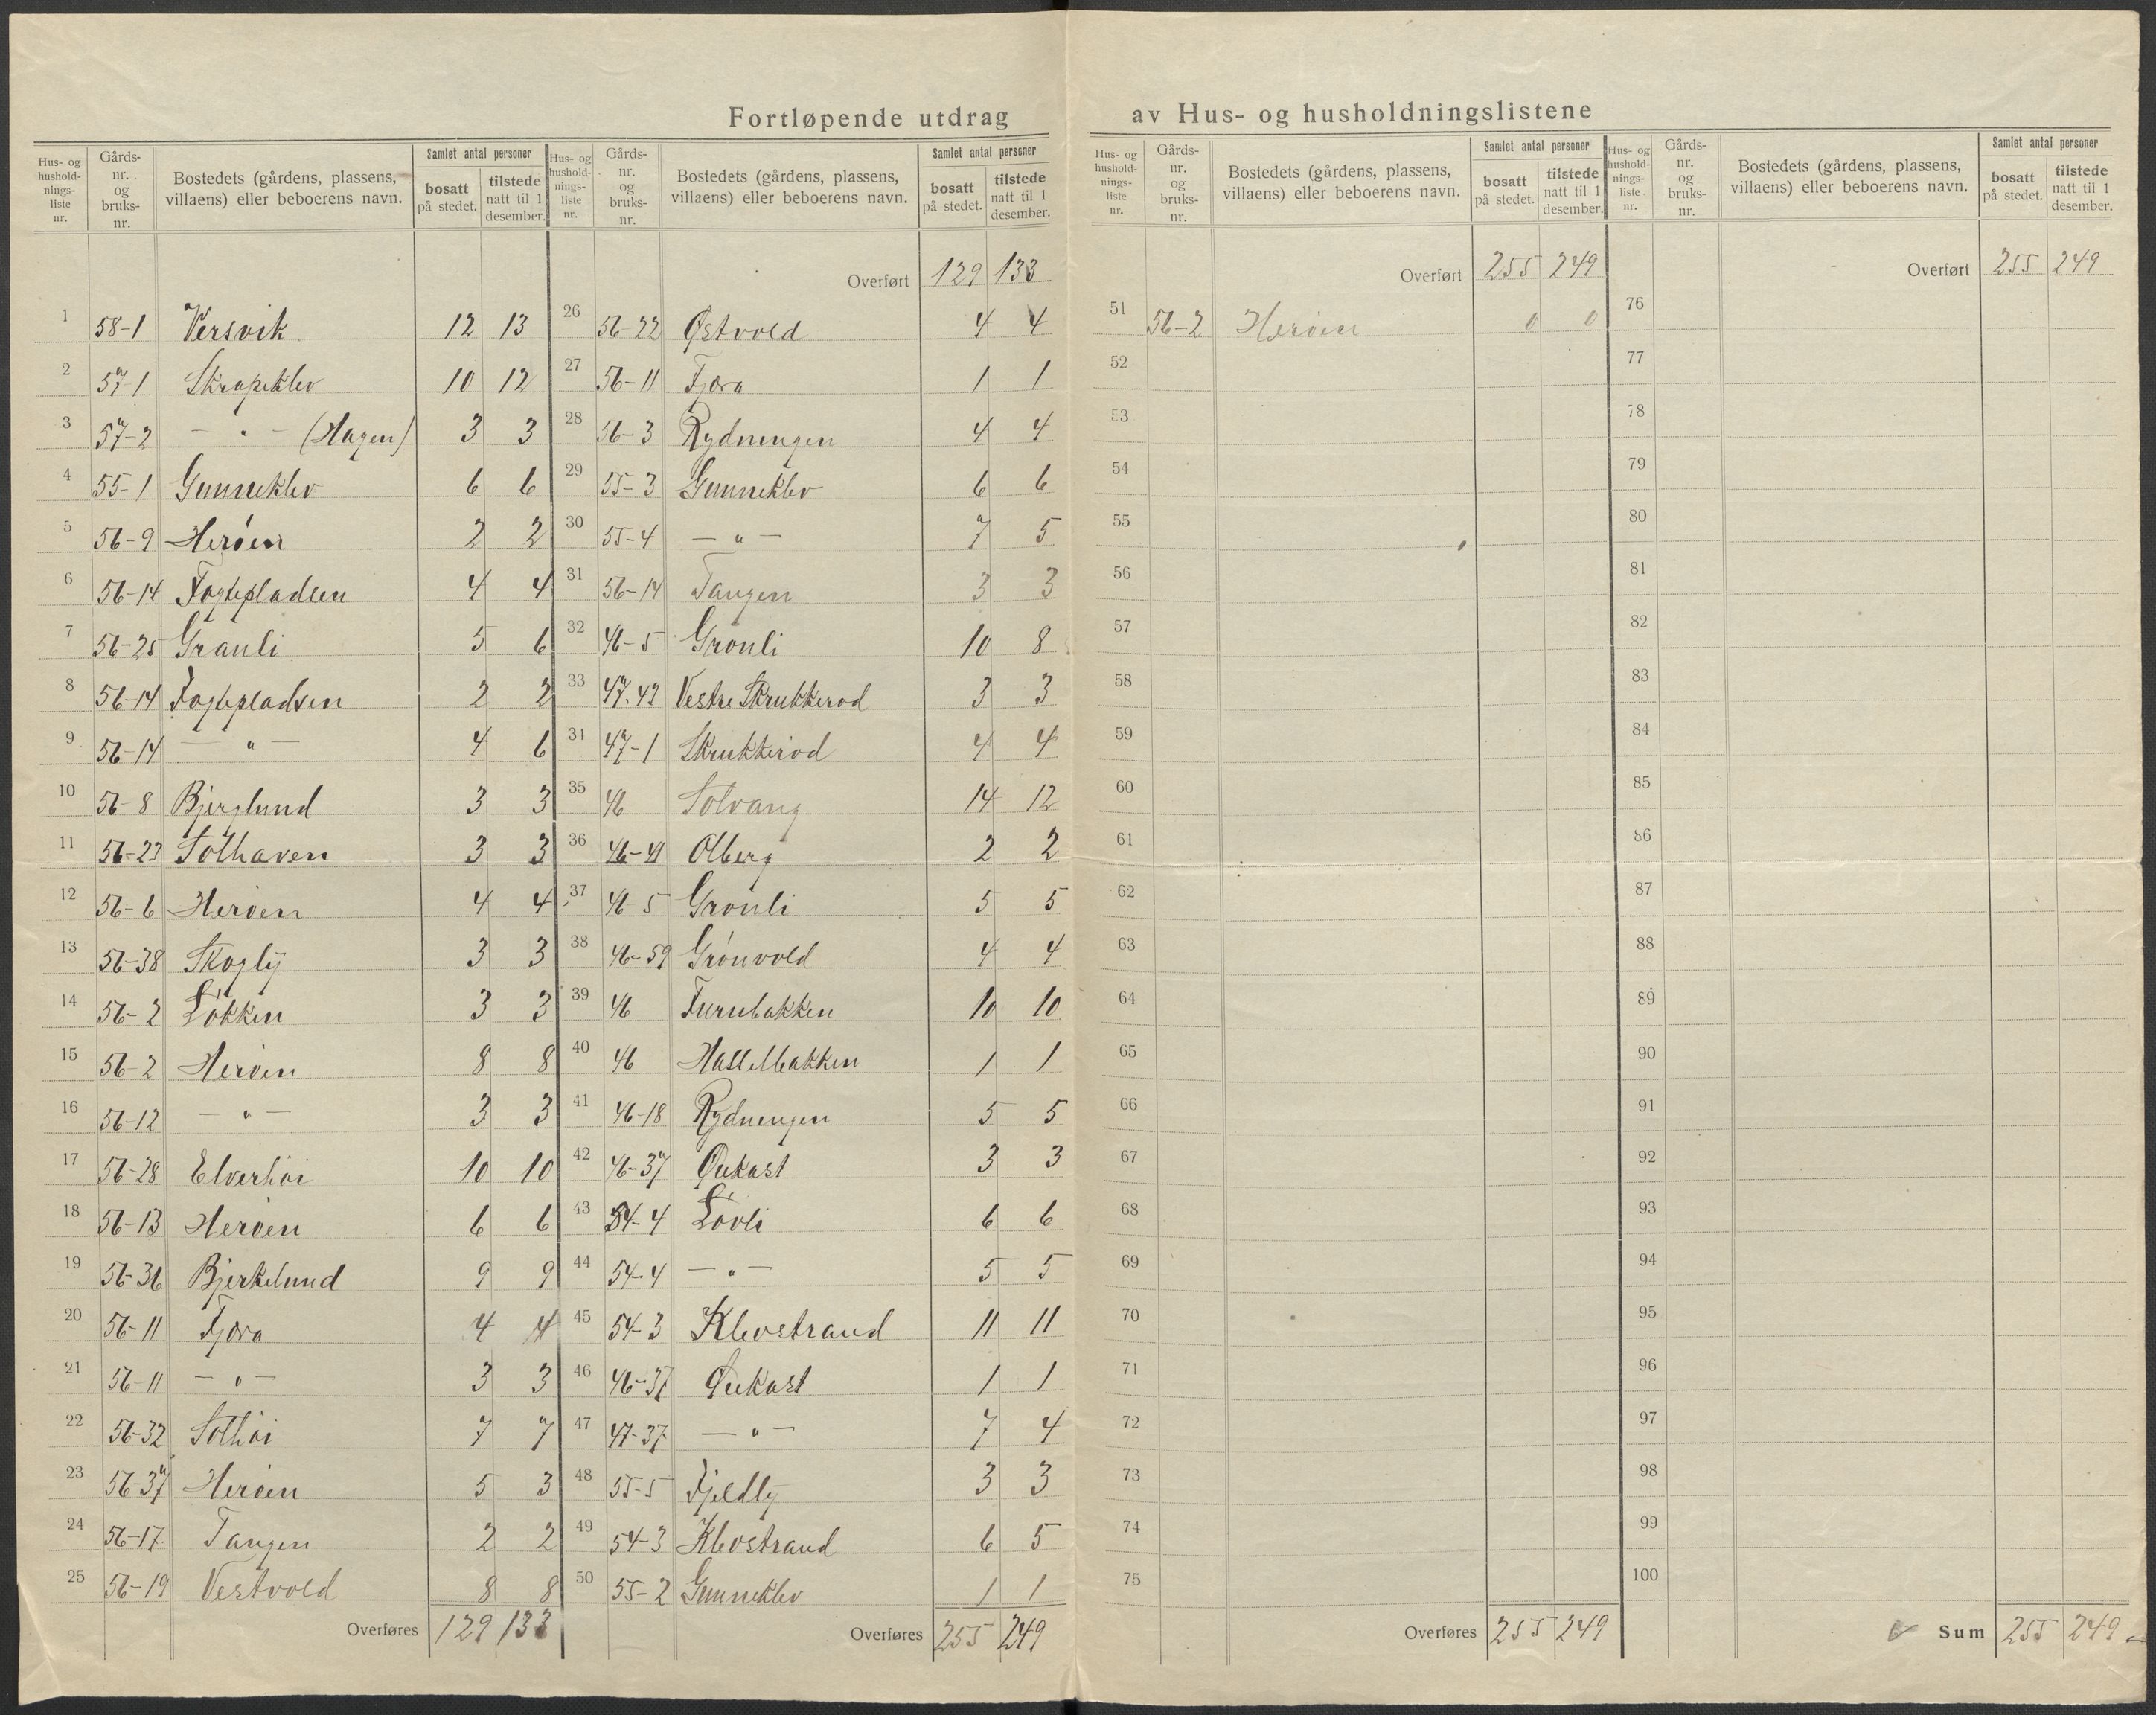 Fortløpende utdrag av Hus- og husholdningslistene
Hus- og husholdnings-liste nr. | Gårds-nr. og bruks-nr. | Bostedets (gårdens, plassens, villaens) eller beboerens navn. | Samlet antal personer | bosatt på stedet. | tilstede natt til 1 desember.
1 58-1 Versvik 12 13
2 57-1 Skrapeklev 10 12
3 57-2 — " — (Hagen) 3 3
4 55-1 Gunneklev 6 6
5 56-9 Herøen 2 2
6 56-14 Fogtepladsen 4 4
7 56-25 Granli 5 6
8 56-14 Fogtepladsen 2 2
9 56-14 — " — 4 6
10 56-8 Bjerglund 3 3
11 56-23 Solhaven 3 3
12 56-6 Herøen 4 4
13 56-38 Skogly 3 3
14 56-2 Løkken 3 3
15 56-2 Herøen 8 8
16 56-12 — " — 3 3
17 56-28 Elverhøi 10 10
18 56-13 Herøen 6 6
19 56-36 Bjerkelund 9 9
20 56-11 Fjæra 4 4
21 56-11 — " — 3 3
22 56-32 Solhøi 7 7
23 56-37 Herøen 5 3
24 56-17 Tangen 2 2
25 56-19 Vestvold 8 8
Overføres 129 133
Hus- og husholdnings-liste nr. | Gårds-nr. og bruks-nr. | Bostedets (gårdens, plassens, villaens) eller beboerens navn. | Samlet antal personer | bosatt på stedet. | tilstede natt til 1 desember.
Overført 129 133
26 56-22 Østvold 4 4
27 56-11 Fjæra 1 1
28 56-3 Rydningen 4 4
29 55-3 Gunneklev 6 6
30 55-4 — " — 7 5
31 56-14 Tangen 3 3
32 46-5 Grønli 10 8
33 47-42 Vestre Skrukkerød 3 3
34 47-1 Skrukkerød 4 4
35 46 Solvang 14 12
36 46-41 Olberg 2 2
37 46-5 Grønli 5 5
38 46-59 Grønvold 4 4
39 46 Furubakken 10 10
40 46 Hasselbakken 1 1
41 46-18 Rydningen 5 5
42 46-37 Ørekast 3 3
43 54-4 Løvli 6 6
44 54-4 — " — 5 5
45 54-3 Klevstrand 11 11
46 46-37 Ørekast 1 1
47 47-37 — " — 7 4
48 55-5 Fjeldly 3 3
49 54-3 Klevstrand 6 5
50 55-2 Gunneklev 1 1
Overføres 255 249
Hus- og husholdnings-liste nr. | Gårds-nr. og bruks-nr. | Bostedets (gårdens, plassens, villaens) eller beboerens navn. | Samlet antal personer | bosatt på stedet. | tilstede natt til 1 desember.
Overført 255 249
51 56-2 Herøen 0 0
52
53
54
55
56
57
58
59
60
61
62
63
64
65
66
67
68
69
70
71
72
73
74
75
Overføres 255 249
Hus- og husholdnings-liste nr. | Gårds-nr. og bruks-nr. | Bostedets (gårdens, plassens, villaens) eller beboerens navn. | Samlet antal personer | bosatt på stedet. | tilstede natt til 1 desember.
Overført 255 249
76
77
78
79
80
81
82
83
84
85
86
87
88
89
90
91
92
93
94
95
96
97
98
99
100
Sum 255 249